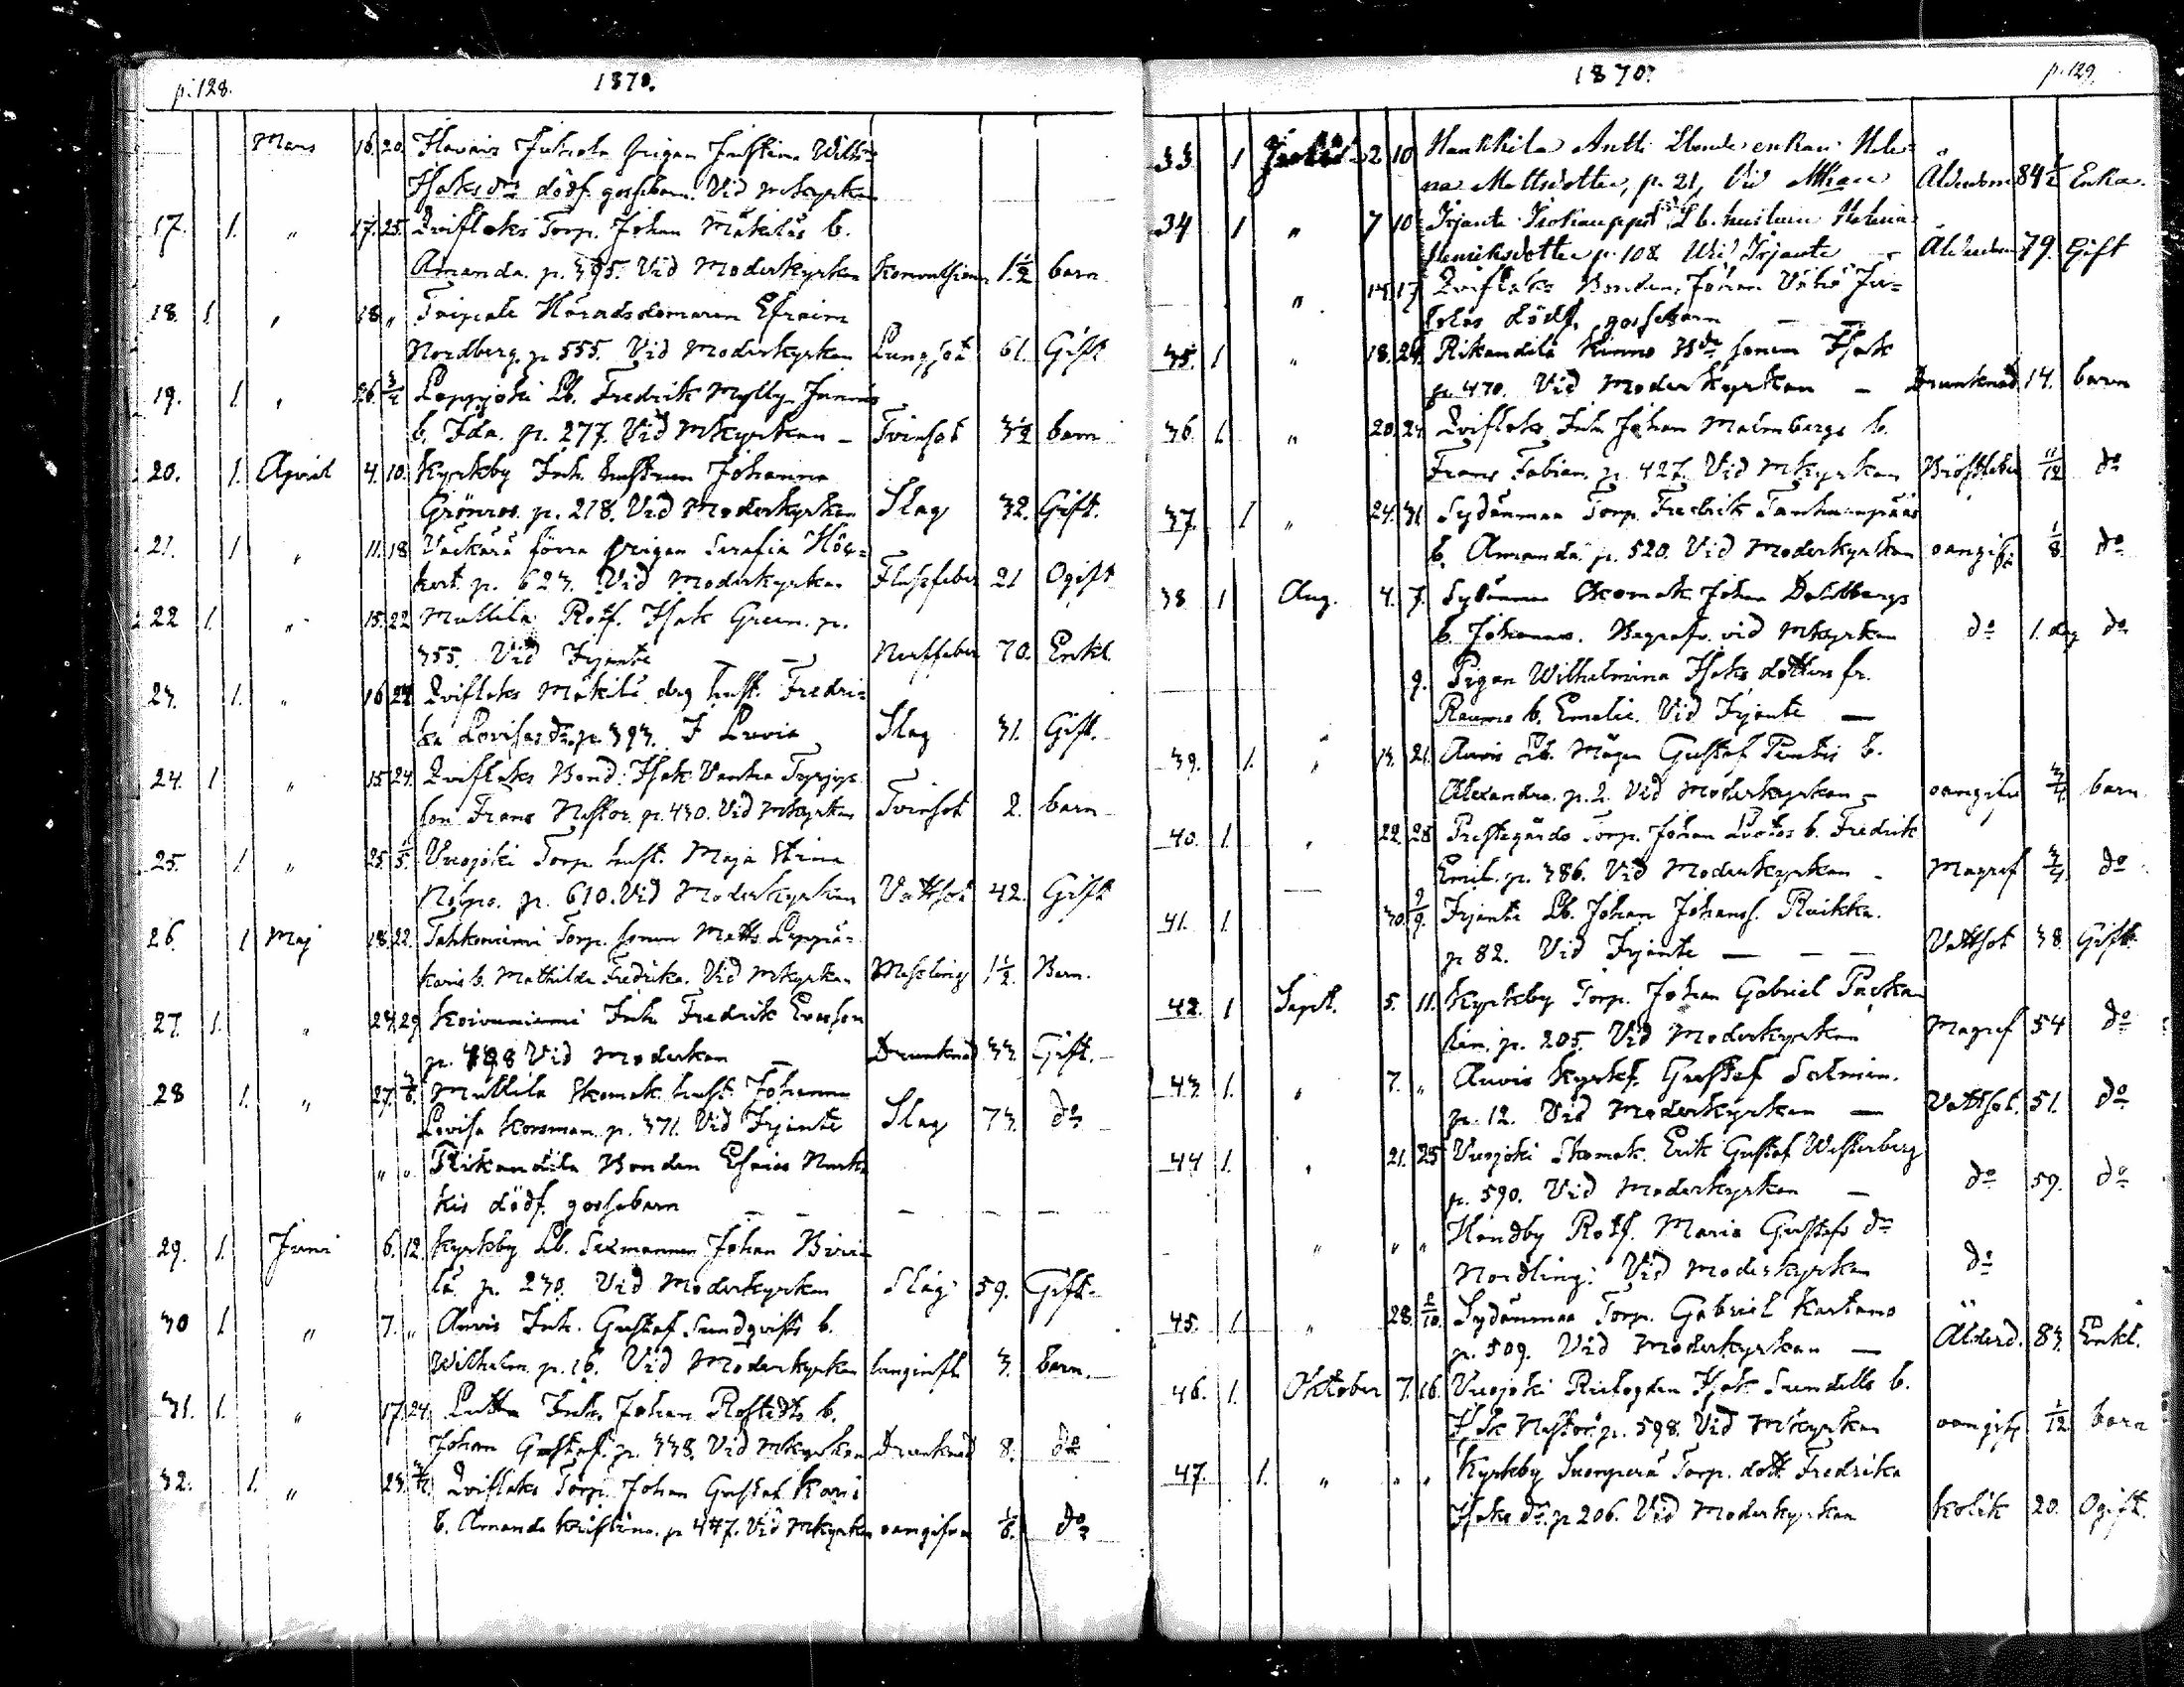 p. 128. 1870.
Mars 16. 20. Hawais Juhola Pigan Justina Wilh:
Isaks dr dödf. gossebarn. Vid Mkyrkan
17. 1. " 17. 25. Qviflaks Torp. Johan Mäkiläs b.
Amanda. p. 395. Vid Moderkyrkan Konvulsion 1 1/2 barn
18. 1. " 18 " Taipale Häradsdomaren Efraim
Nordberg. p. 555. Vid Moderkyrkan Lungsot 61. Gift
19. 1. " 26. 3/4 Lappjoki Lb. Fredrik Mylly
b. Ida. p. 277. Vid Mkyrkan - Tvinsot 3 1/2 barn
20. 1. April 4. 10. Kyrkby Inh. hustrun Johanna
Grönroos. p. 218. Vid Moderkyrkan Slag 32. Gift.
21. 1 " 11. 18 Väckärä förra Pigan Serafia Hög=
kert. p. 623. Vid Moderkyrkan Flussfeber 21 Ogift
22 1. " 15. 22 Mullila Rotf. Isak Green. p.
355. Vid Irjante Nerffeber 70. Enkl.
23. 1. " 16 24 Qviflaks Mäkilä drg. hust. Fredri=
ka Lovisa dr. p. 393. I Luvia Slag 31. Gift.
24. 1 " 15 24. Qviflaks Bond. Isak Vanha
son Frans Nestor. p. 430. Vid Mkyrkan Tvinsot 2. barn
25. 1 " 25. 1/5. Vuojoki Torp. hust. Maja Stina
p. 610. Vid Moderkyrkan Vattsot 42. Gift
26. 1 Maj 18. 22. Tahkoniemi Torp. sonen Matts Leppä=
karis b. Mathilda Fredrika. Vid Mkyrkan Messling 1 1/2. Barn.
27. 1. " 24. 29 Koivuniemi Inh. Fredrik Ewasson
p. 498 Vid Moderkan Drunknad 33. Gift.
28 1. " 27. 3/6. Mullila Skomak. hust. Johanna
Lovisa Korsman. p. 371. Vid Irjante Slag 73. do
" " Rikandila Bonden Efraim
kis dödf. gossebarn - - - - -
29. 1. Juni 6. 12. Kyrkby Lb. Sexmannen Johan
lä p. 230. Vid Moderkyrkan Slag 59. Gift.
30 1. " 7. " Auvis Inh. Gustaf Sundqvists b.
Wilhelm. p. 16. Vid Moderkyrkan lunginfl. 3. barn.
31. 1. " 17. 24 Lutta Inh. Johan Rostedts b.
Johan Gustaf. p. 338. Vid Mkyrkan Drunknad 8. do
32. 1. " 23. Qviflaks Torp. Johan Gustaf Karis
b. Amanda Kristina. p. 447. Vid Mkyrkan oangifven 1/6. do
1870. p. 129.
33. 1 2 10 Hankkila Antti Lbonde enkan Hele=
na Mattsdotter, p. 21, Vid Mkan Ålderdom 84 1/2 Enka.
34 1 " 7 10 Irjante Lb. hustrun Helena
Henriksdotter p. 108. Vid Irjante Ålderdom 79. Gift
" 14. 17 Qviflaks Bonden Johan
dödf. gossebarn - -
35. 1 " 18. 24. Rikandila Kinno sonen Isak
p. 470. Vid Moderkyrkan - Drunknad 14. barn
36. 1 " 20. 24. Qviflaks Inh. Johan Malmbergs b.
Frans Fabian. p. 427. Vid Mkyrkan Bröstfeber 11/12 do
37. 1 " 24. 31 Sydänmaa Torp. Fredrik Tanhuanpääs
b. Amanda p. 520. Vid Moderkyrkan oangif. 1/8. do
38 1 Aug. 4. 7. Sydänmaa Skomak. Johan Dahlbergs
b. Johannes. Begrafv. vid Mkyrkan do 1. dag do
9. Pigan Wilhelmina Isaks dotters fr.
Raumo b. Emelie. Vid Irjante -
39. 1. " 13. 21. Auvis Lb. Mågen Gustaf Penttis b.
Alexandra. p. 2. Vid Moderkyrkan - oangifv 3/4. barn
40. 1. " 22. 28 Prestegårds Torp. Johan b. Fredrik
Emil. p. 386. Vid Moderkyrkan - Magref 3/4. do
41. 1. 30. Irjante Lb. Johan Johanss. Ruikka.
p 82. Vid Irjante - - - Vattsot 38 Gift.
42. 1 Sept. 5. 11. Kyrkby Torp. Johan Gabriel
p. 205. Vid Moderkyrkan Magref 54 do
43. 1. " 7. " Auvis Kyrkof. Gustaf Salmin.
p. 12. Vid Moderkyrkan - Vattsot. 51. do
44 1. " 21. 25 Vuojoki Skomak. Erik Gustaf Westerberg
p. 590. Vid Moderkyrkan - do 59. do
" " " Handby Rotf. Maria Gustafs dr
Nordling. Vid Moderkyrkan do
45. 1. " 28. 2/10. Sydänmaa Torp. Gabriel Kartano
p. 509. Vid Moderkyrkan - Ålderd. 83. Enkl.
46. 1. Oktober 7. 16. Vuojoki Isak Sundells b.
Isak Nestor. p. 598. Vid Mkyrkan oangif. 1/12 barn
47. 1. " " " Kyrkby Suonperä Torp. dott. Fredrika
Isaks dr. p 206. Vid Moderkyrkan Kolik 20. Ogift.